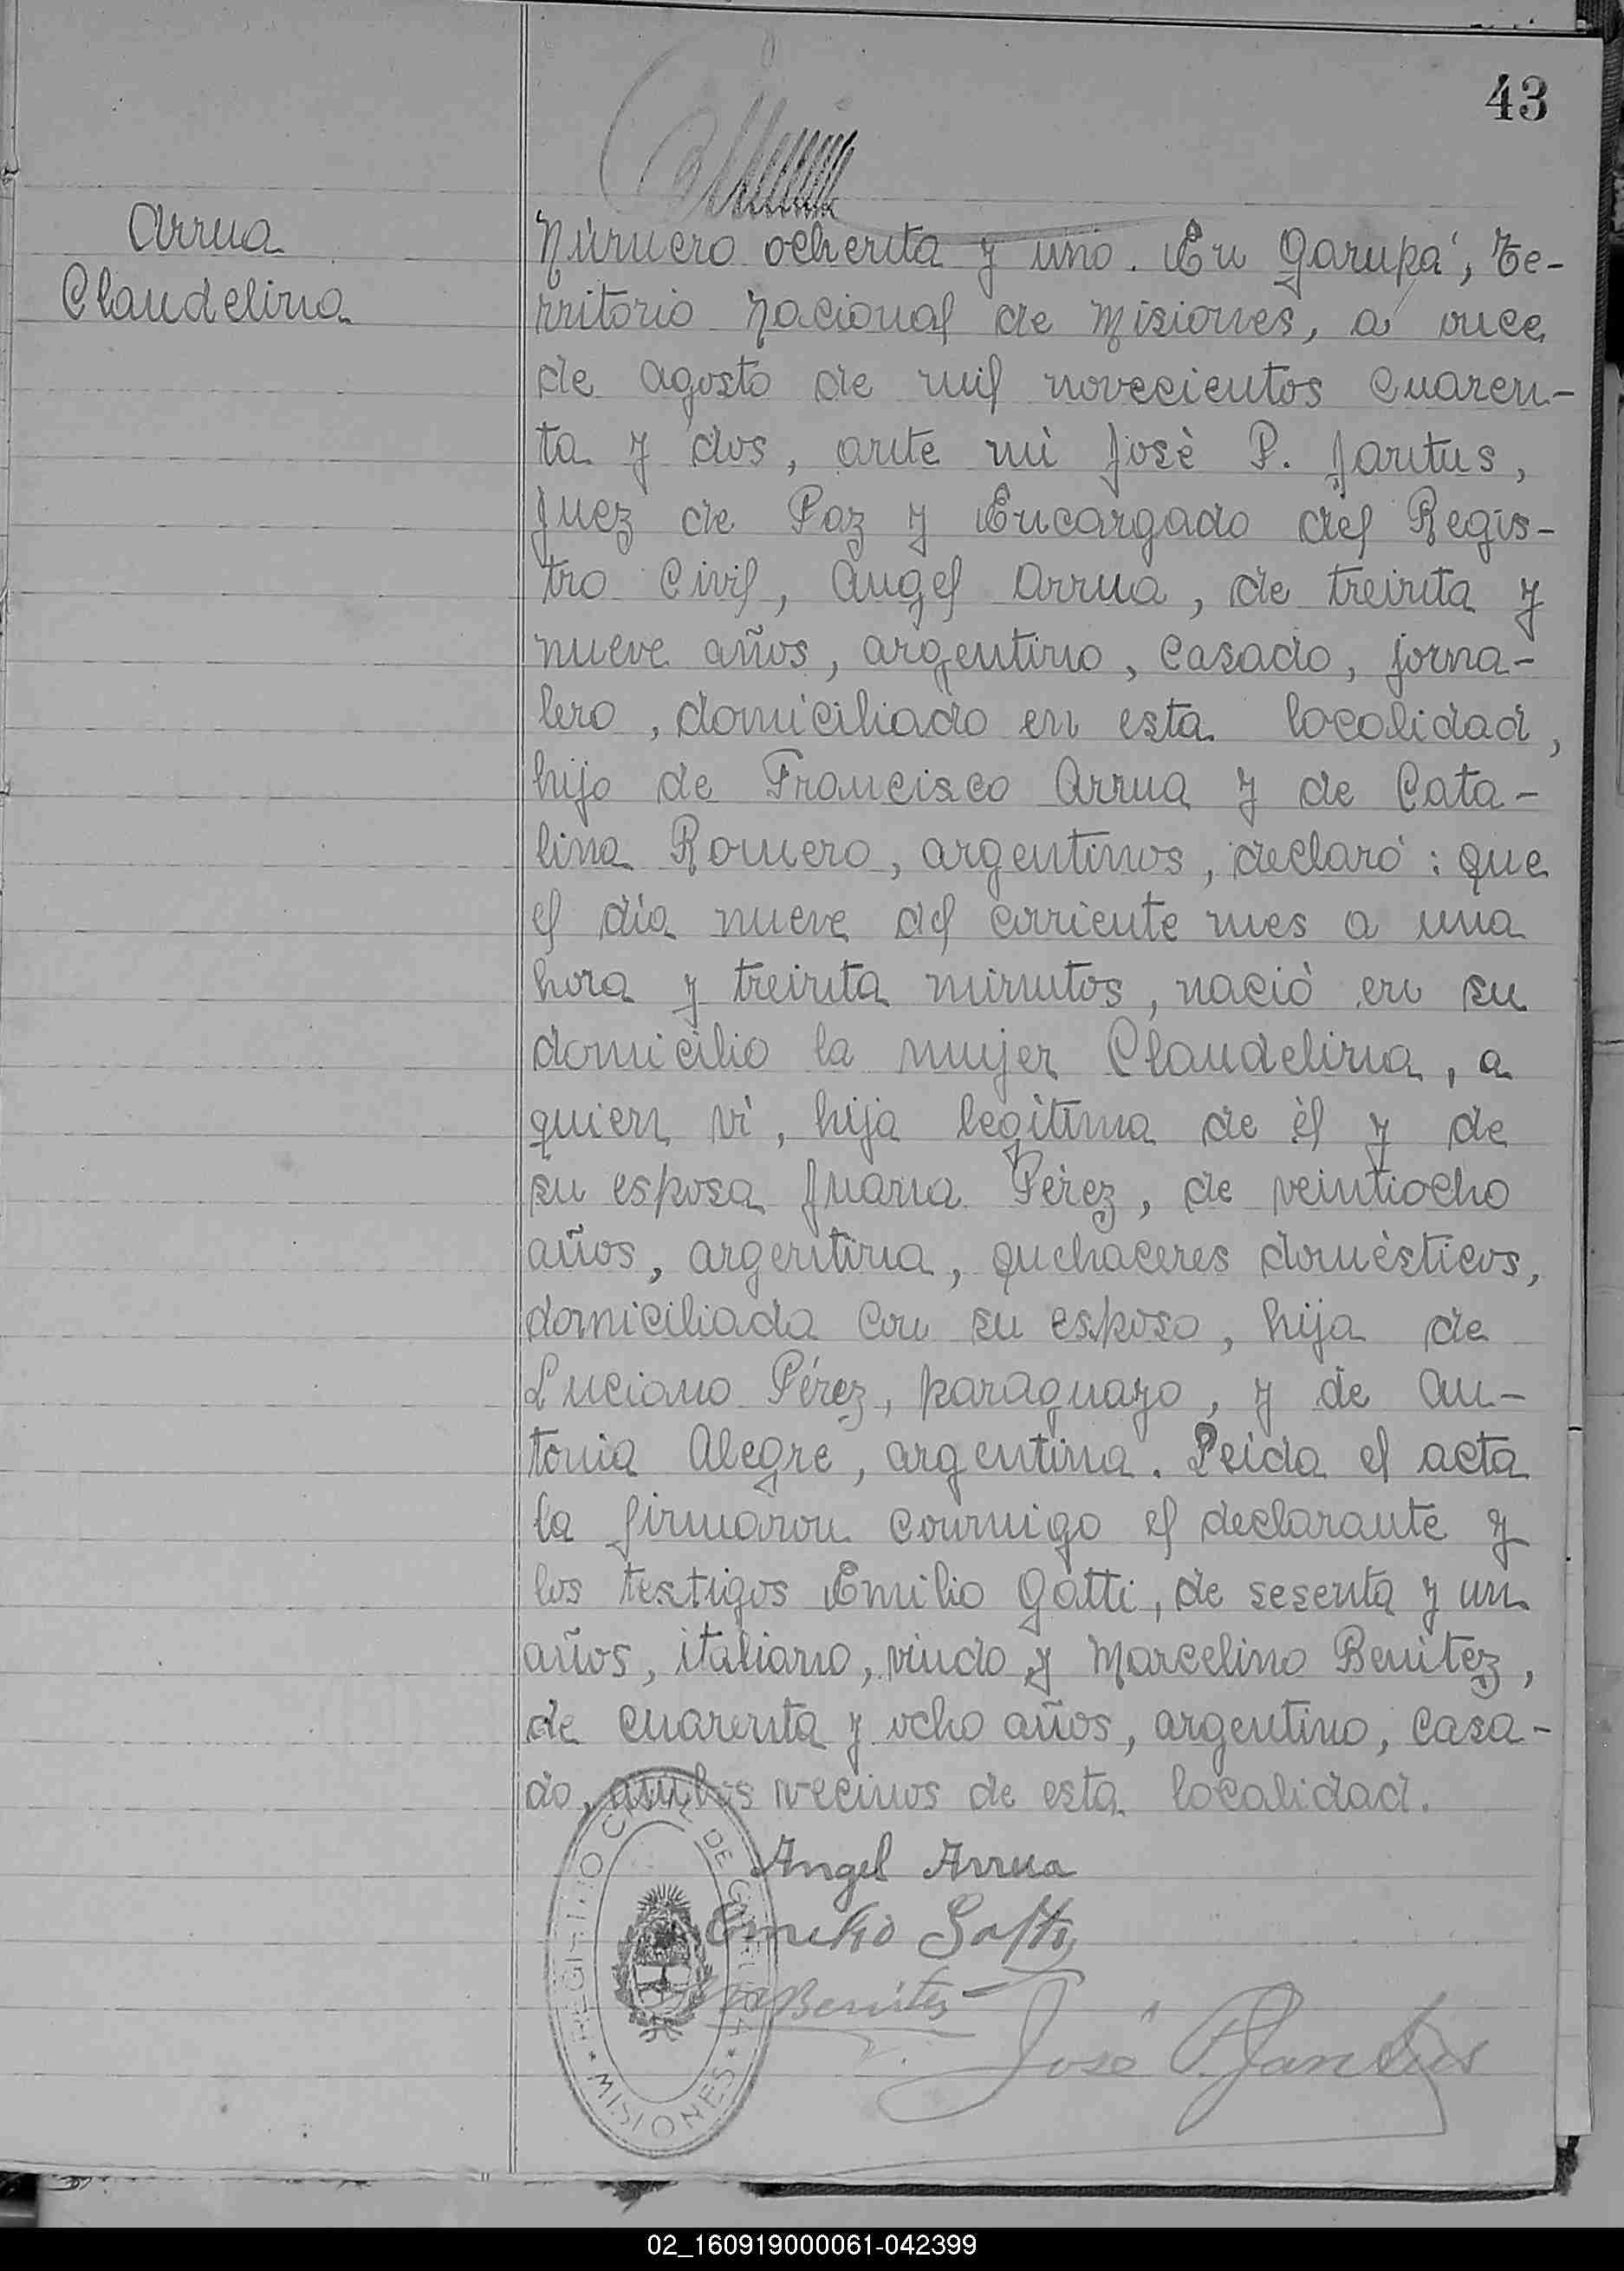 43
Arrua
Claudelina
Número ochenta y uno. En Garupá, Te-
rritorio Nacional de Misiones, a once
de agosto de mil novecientos cuaren-
ta y dos, ante mì José P. Jantus,
Juez de Paz y Encargado del Regis-
tro Civil, Angel Arrua, de treinta y
nueve años, argentino, casado, jorna-
lero, domiciliado en esta localidad,
hijo de Francisco Arrua y de Cata-
lina Romero, argentinos, declaró: que
el día nueve del corriente mes a una
hora y treinta minutos, nació en su
domicilio la mujer Claudelina, a
quien vi, hija legítima de él y de
su esposa Juana Pérez, de veintiocho
años, argentina, quehaceres domésticos,
domiciliada con su esposo, hija de
Luciano Pérez, paraguayo, y de An-
tonia Alegre, argentina. Leida el acta
la firmaron conmigo el declarante y
los testigos Emilio Gatti, de sesenta y un
años, italiano, viudo y Marcelino Benítez,
de cuarenta y ocho años, argentino, casa-
do, ambos vecinos de esta localidad.
Angel Arrua
Emilio Gatti
Benítez
José P. Jantus
REGISTRO CIVIL DE
* MISIONES *
02_160919000061-042399